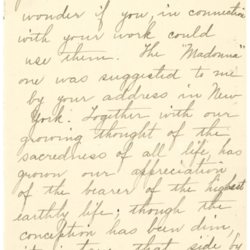 wonder if you, in connection
with your work could
use them. The "Madonna"
one was suggested to me
by your address in New
York. Together with our
growing thought of the
sacredness of all life has
grown our appreciation
of the bearer of the highest
earthly life, though the
conception has been dim,
that side,